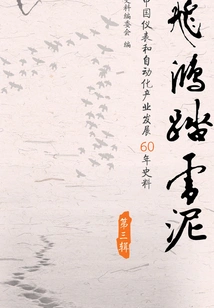 飞鸿踏雪泥
中国仪表和自动化产业发展60年史料
第三辑
史料编委会 编